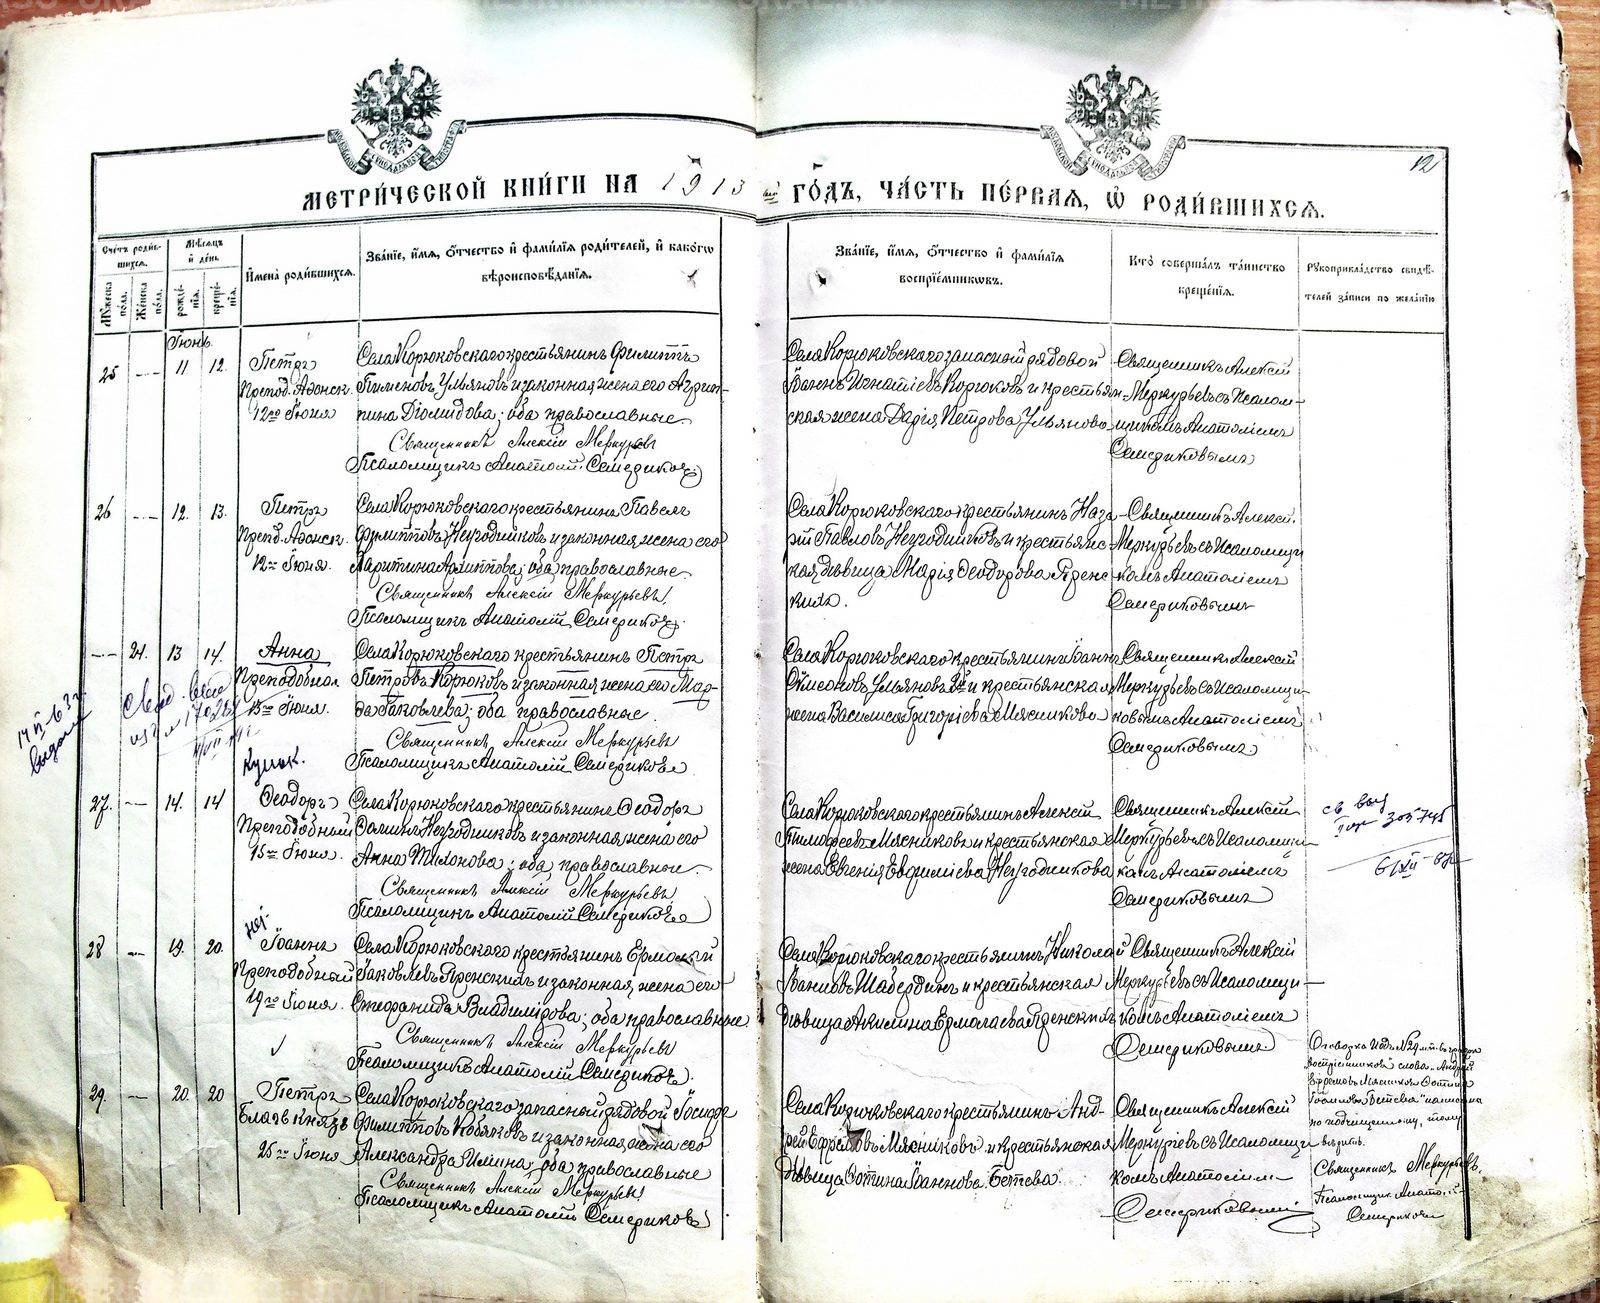 МЕТРИЧЕСКОЙ КНИГИ НА 1913 ГОДЪ, ЧАСТЬ ПЕРВАЯ, Ѡ РОДИВШИХСЯ.
12
Счетъ родившихся.
Мужеска пола.
Женска пола.
Мѣсяцъ и день.
рожденія.
крещенія.
Имена родившихся.
Званіе, имя, отчество и фамилія родителей, и какого
вѣроисповѣданія.
Званіе, имя, отчество и фамилія
воспріемниковъ.
Кто совершалъ таинство
крещенія.
Рукоприкладство свидѣ-
телей записи по желанію
Іюнь
25 11 12.
Петръ
Препод. Аѳонск.
12го Іюня
Села Корюковскаго крестьянинъ Филиппъ
Пименовъ Ульяновъ и законная жена его Агрип-
пина Діомидова; оба православные.
Священникъ Алексій Меркурьевъ
Псаломщикъ Анатолій Семериковъ
Села Корюковскаго запасный рядовой
Іоаннъ Игнатіевъ Корюковъ и крестьян-
ская жена Дарія Петрова Ульянова
Священникъ Алексій
Меркурьевъ съ псалом-
щикомъ Анатоліемъ
Семериковымъ
26 12. 13.
Петръ
Препд. Аѳонск.
12го Іюня.
Села Корюковскаго крестьянинъ Павелъ
Филипповъ Негодниковъ и законная жена его
Харитина Архиппова; оба православные.
Священникъ Алексій Меркурьевъ
Псаломщикъ Анатолій Семериковъ
Села Корюковскаго крестьянинъ Наза-
рій Павловъ Негодниковъ и крестьянс-
кая дѣвица Марія Ѳеодорова
Священникъ Алексій
Меркурьевъ съ псаломщи
комъ Анатоліемъ
Семериковымъ
24. 13 14.
Анна
Преподобная
13го Іюня.
Села Корюковскаго крестьянинъ Петръ
Петровъ Корюковъ и законная жена его Мар-
Іаковлева; оба православные.
Священникъ Алексій Меркурьевъ
Псаломщикъ Анатолій Семериковъ
Села Корюковскаго крестьянинъ Іоаннъ
Симеоновъ Ульяновъ и крестьянская
жена Василиса Григоріева Мясникова
Священникъ Алексій
Меркурьевъ съ псаломщи-
Анатоліемъ
Семериковымъ.
27. 14. 14
Ѳеодоръ
Преподобный
15го Іюня
Села Корюковскаго крестьянинъ Ѳеодоръ
Ѳоминъ Негодниковъ и законная жена его
Анна оба православные.
Священникъ Алексій Меркурьевъ
Псаломщикъ Анатолій Семериковъ
Села Корюковскаго крестьянинъ Алексій
Тимоѳеевъ Мясниковъ и крестьянская
жена Евгенія Евфиміева Негодникова
Священникъ Алексій
Меркурьевъ съ псаломщи
комъ Анатоліемъ
Семериковымъ
28 19. 20.
Іоаннъ
Преподобный
19го Іюня.
Села Корюковскаго крестьянинъ Ермолай
Іаковлевъ и законная жена его
Владимірова; оба православные
Священникъ Алексій Меркурьевъ
Псаломщикъ Анатолій Семериковъ.
Села Корюковскаго крестьянинъ Николай
Іоанновъ Шабердинъ и крестьянская
дѣвица Акилина Ермолаева
Священникъ Алексій
Меркурьевъ съ псаломщи-
комъ Анатоліемъ
Семериковымъ
29. 20. 20
Петръ
Благ. князь
25го Іюня
Села Корюковскаго запасный рядовой Іосифъ
Филипповъ Кобяковъ и законная жена его
Александра Ильина; оба православные
Священникъ Алексій Меркурьевъ
Псаломщикъ Анатолій Семериковъ
Села Корюковскаго крестьянинъ Анд-
рей Ефремовъ Мясниковъ и крестьянская
дѣвица Фотина Іоаннова Бетева.
Священникъ Алексій
Меркурьевъ съ псаломщи
комъ Анатоліемъ
Семериковымъ
Оговорка подъ №29 въ графѣ
воспріемниковъ слова „Андрей
Ефремовъ Мясниковъ Фотина
Іоаннова Бетева" написаны
по подчищенному, тому
вѣрить.
Священникъ Меркурьевъ.
Псаломщикъ Анатолій
Семериковъ